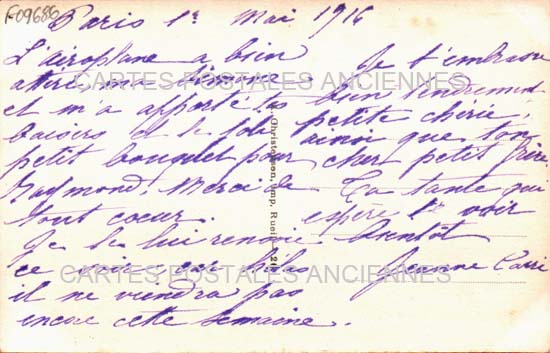 F09686
Paris 1r Mai 1916
L'aéroplane a bien
atterri ma mignonne
et m'a apporté tes
baisers et le joli
petit bouquet pour
Raymond! Merci de
tout coeur.
Je te lui renvoie
ce soir car
il ne viendra pas
encore cette semaine.
Je t'embrasse
bien tendrement
petite chérie
ainsi que ton
cher petit frère
Ta tante qui
espère te voir
bientôt
Jeanne
Christensen, Imp. Rueil
CARTES POSTALES ANCIENNES
CARTES POSTALES ANCIENNES